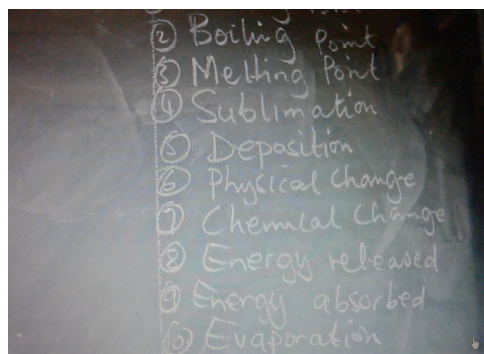 ② Boiling Point
③ Melting Point
④ Sublimation
⑤ Deposition
⑥ Physical Change
⑦ Chemical Change
⑧ Energy released
⑨ Energy absorbed
⑩ Evaporation